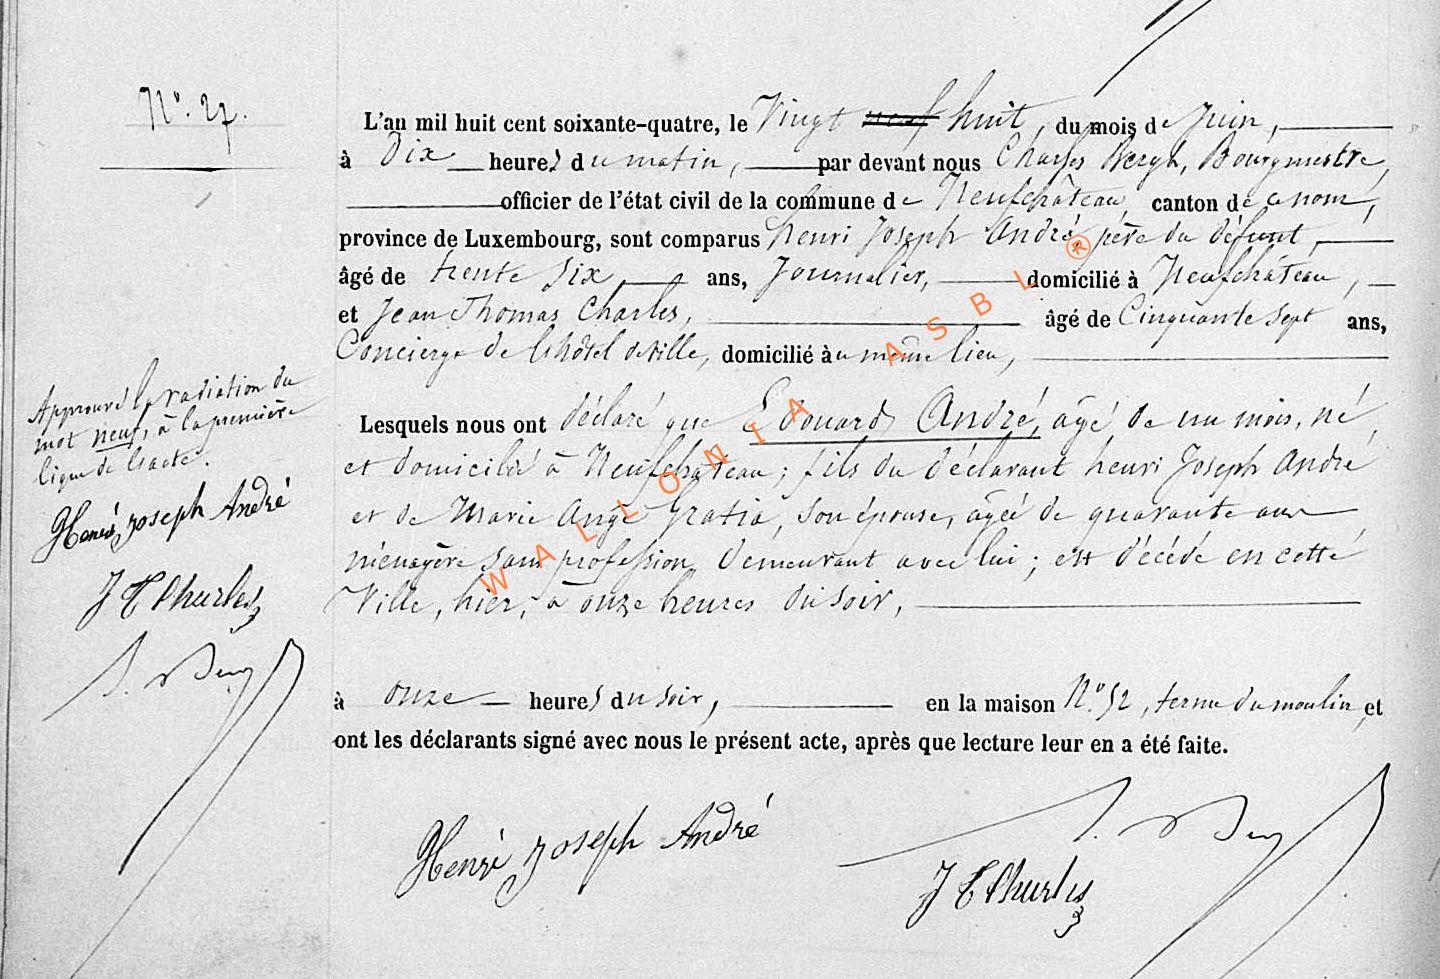 N° 27.
L'an mil huit cent soixante-quatre, le Vingt neuf huit, du mois de Juin,
à Dix heures du matin, par devant nous Charles Bergh, Bourgmestre,
officier de l'état civil de la commune de Neufchâteau canton de ce nom,
province de Luxembourg, sont comparus henri Joseph André père du défunt,
âgé de trente six ans, Journalier, domicilié à Neufchâteau,
et Jean Thomas Charles, âgé de Cinquante Sept ans,
Concierge de l'hôtel de ville, domicilié au même lieu,
Approuvé la radiation du
mot neuf, à la première
ligne de l'acte.
Henri Joseph André
J T Charles
Lesquels nous ont déclaré que Edouard André, agé de un mois, né
et domicilié à Neufchâteau; fils du déclarant henri Joseph André
et de Marie Ange Gratia, son épouse, agée de quarante ans
ménagère sans profession, demeurant avec lui; est décédé en cette
Ville, hier, à onze heures du soir,
à onze heures du soir, en la maison N° 52, du moulin, et
ont les déclarants signé avec nous le présent acte, après que lecture leur en a été faite.
Henri Joseph André
J T Charles
WALLONIA ASBL ®